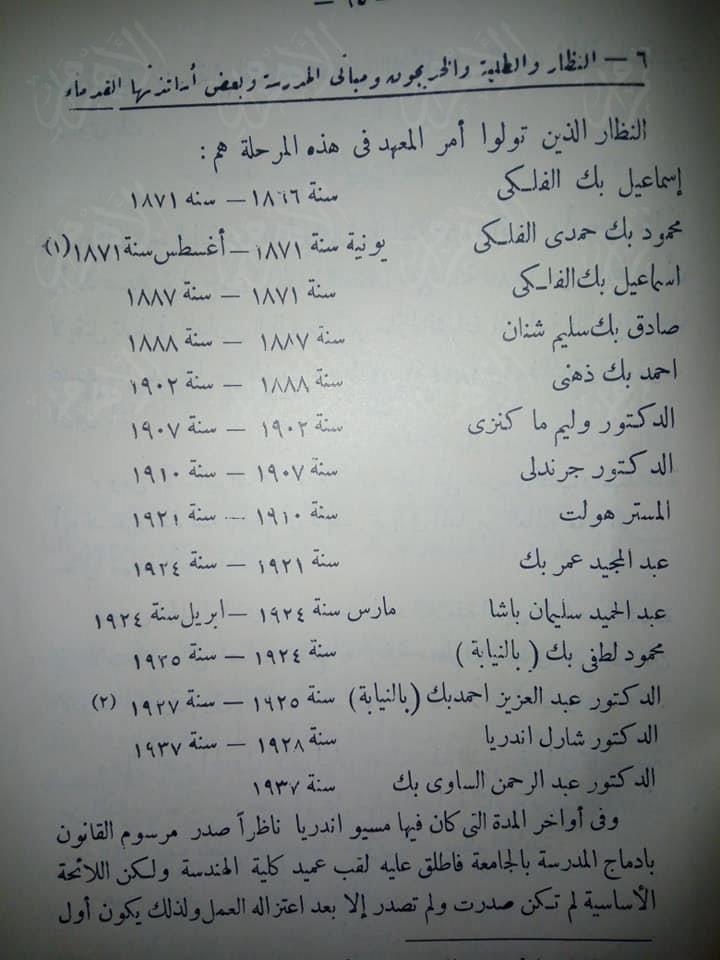 - ١٥ -
٦ — النظار والطلبة والخريجون ومبانى المدرسة وبعض أساتذتها القدماء
النظار الذين تولوا أمر المعهد فى هذه المرحلة هم :
إسماعيل بك الفلكى سنة ١٨٦٦ — سنه ١٨٧١
محمود بك حمدى الفلكى يونية سنة ١٨٧١ — أغسطس سنة ١٨٧١ (١)
اسماعيل بك الفلكى سنة ١٨٧١ — سنة ١٨٨٧
صادق بك سليم شنان سنة ١٨٨٧ — سنة ١٨٨٨
احمد بك ذهنى سنة ١٨٨٨ — سنة ١٩٠٢
الدكتور وليم ما كنزى سنة ١٩٠٢ — سنة ١٩٠٧
الدكتور جرندلى سنة ١٩٠٧ — سنة ١٩١٠
المستر هولت سنة ١٩١٠ — سنة ١٩٢١
عبد المجيد عمر بك سنة ١٩٢١ — سنة ١٩٢٤
عبد الحميد سليمان باشا مارس سنة ١٩٢٤ — ابريل سنة ١٩٢٤
محمود لطفى بك ( بالنيابة ) سنة ١٩٢٤ — سنة ١٩٢٥
الدكتور عبد العزيز احمد بك (بالنيابة) سنة ١٩٢٥ — سنة ١٩٢٧ (٢)
الدكتور شارل اندريا سنة ١٩٢٨ — سنة ١٩٣٧
الدكتور عبد الرحمن الساوى بك سنة ١٩٣٧
وفى أواخر المدة التى كان فيها مسيو اندريا ناظراً صدر مرسوم القانون
بادماج المدرسة بالجامعة فاطلق عليه لقب عميد كلية الهندسة ولكن اللائحة
الأساسية لم تكن صدرت ولم تصدر إلا بعد اعتزاله العمل ولذلك يكون أول